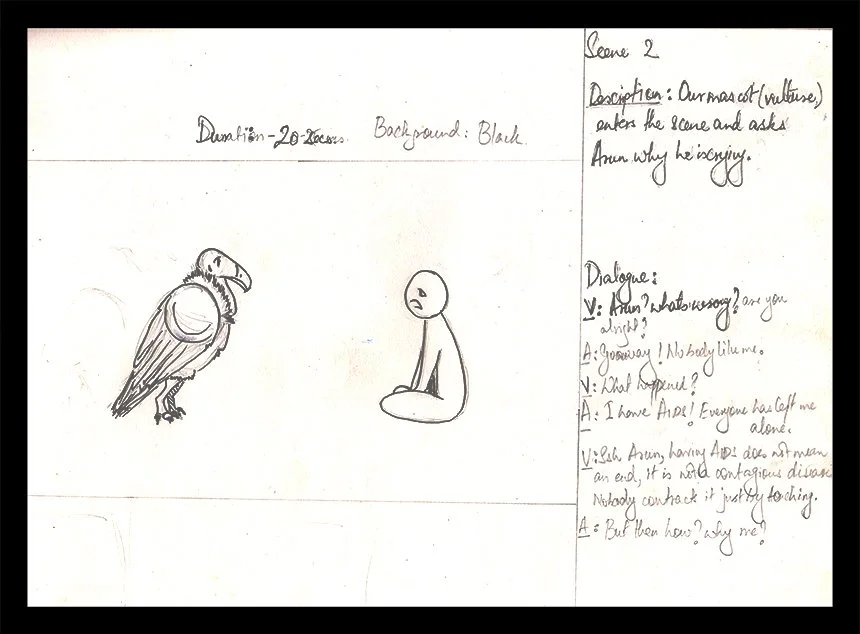 Scene 2
Desciption: Our mascot (vulture,)
enters the scene and asks
Arun why he is crying.
Duration - 20 Background: Black.
Dialogue:
V: Arun? whats wrong? are you
alright?
A: Go away! Nobody like me.
V: What happened?
A: I have AIDS! Everyone has left me
alone.
V: Ssh Arun, having AIDS does not mean
an end, it is not a contagious disease
Nobody contrack it just by toching.
A: But then how? why me?